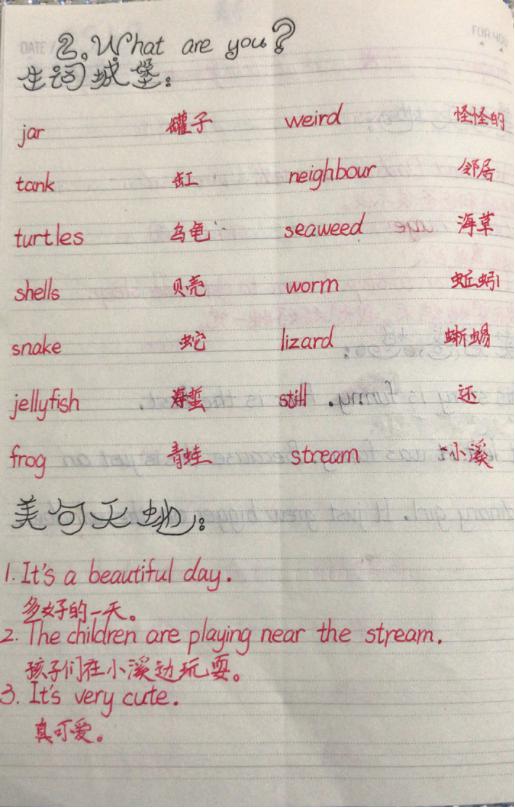 2. What are you?
生词城堡:
jar 罐子 weird 怪怪的
tank 缸 neighbour 邻居
turtles 乌龟 seaweed 海草
shells 贝壳 worm 蚯蚓
snake 蛇 lizard 蜥蜴
jellyfish 海蜇 still 还
frog 青蛙 stream 小溪
美句天地:
1. It's a beautiful day.
多好的一天。
2. The children are playing near the stream.
孩子们在小溪边玩耍。
3. It's very cute.
真可爱。